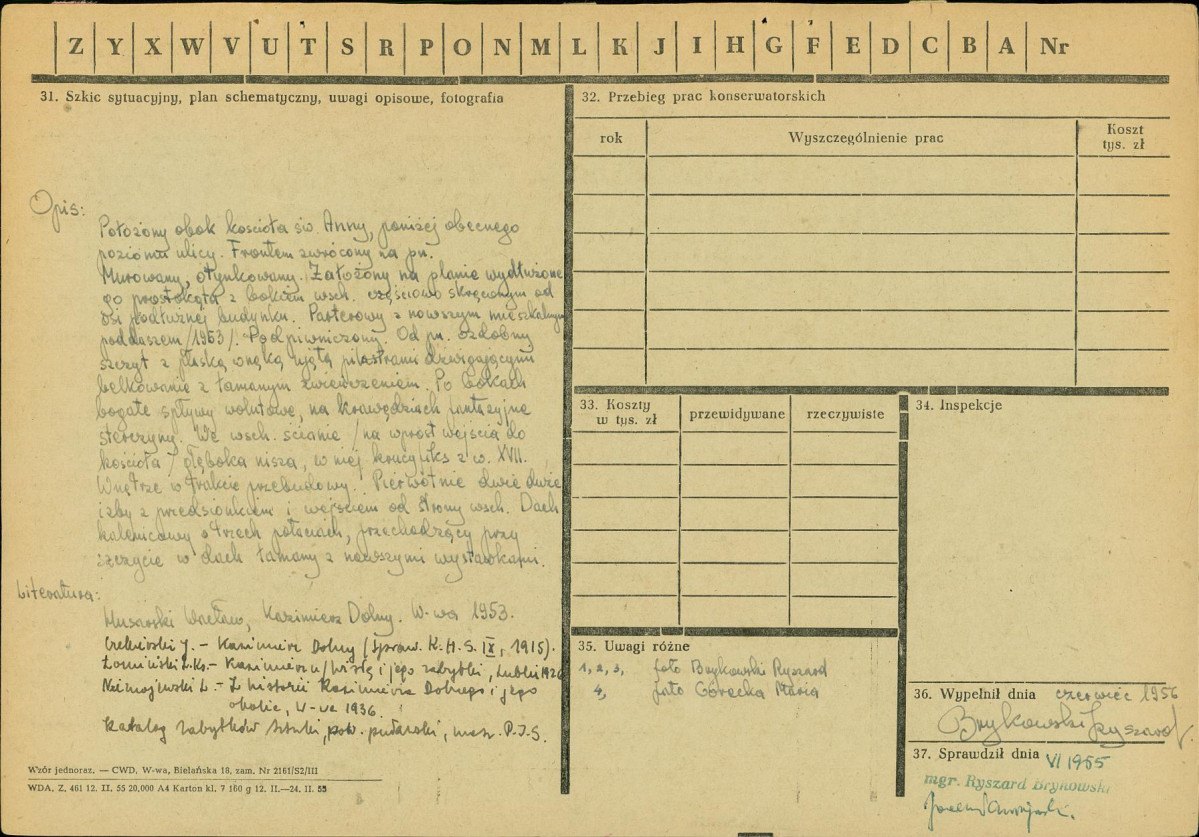 Z Y X W V U T S R P O N M L K J I H G F E D C B A Nr
31. Szkic sytuacyjny, plan schematyczny, uwagi opisowe, fotografia
Opis:
Położony obok kościoła św. Anny, poniżej obecnego
poziomu ulicy. Frontem zwrócony na pn.
Murowany, otynkowany. Założony na planie wydłużone
go prostokąta z bokiem wsch. częściowo skręconym od
osi podłużnej budynku. Parterowy z nowszym mieszkalnym
poddaszem /1953/. Podpiwniczony. Od pn. ozdobny
szczyt z płaską wnęką ujętą pilastrami dźwigającymi
belkowanie z łamanym zwieńczeniem. Po bokach
bogate spływy wolutowe, na krawędziach fantazyjne
sterczyny. We wsch. ścianie /na wprost wejścia do
kościoła/ głęboka nisza, w niej krucyfiks z w. XVII.
Wnętrze w trakcie przebudowy. Pierwotnie dwie duże
izby z przedsionkiem i wejściem od strony wsch. Dach
kalenicowy o trzech połaciach, przechodzący przy
szczycie w dach łamany z nowszymi wystawkami.
Literatura:
Husarski Wacław, Kazimierz Dolny. W-wa 1953.
J. - Kazimierz Dolny (Spraw. K.H.S. IX, 1915).
Ks. - Kazimierz n/Wisłą i jego zabytki, Lublin 192
Niemojewski L. - Z historii Kazimierza Dolnego i jego
okolic, W-wa 1936.
Katalog zabytków sztuki, pow. puławski, msz. P.I.S.
Wzór jednoraz. — CWD, W-wa, Bielańska 18, zam. Nr 2161/S2/III
WDA, Z. 461 12. II. 55 20,000 A4 Karton kl. 7 160 g 12. II.—24. II. 55
32. Przebieg prac konserwatorskich
rok Wyszczególnienie prac Koszt
tys. zł
33. Koszty
w tys. zł przewidywane rzeczywiste
34. Inspekcje
35. Uwagi różne
1, 2, 3, foto Brykowski Ryszard
4, foto Górecka Maria
36. Wypełnił dnia czerwiec 1956
Brykowski Ryszard.
37. Sprawdził dnia VI 1955
mgr. Ryszard Brykowski